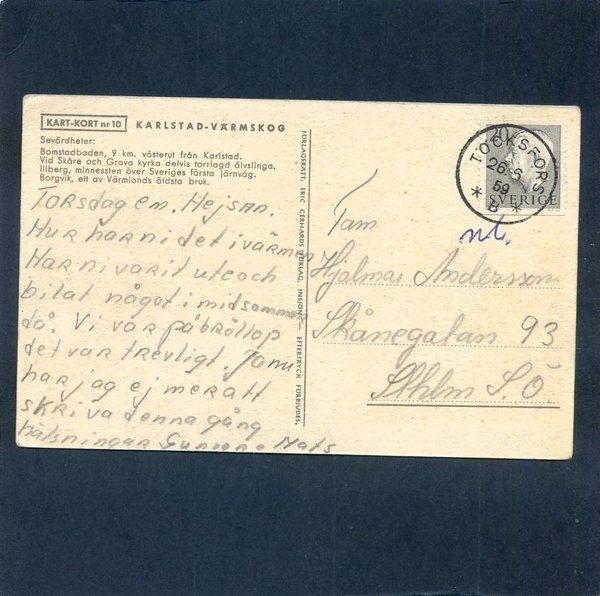 KART-KORT nr 10 KARLSTAD-VÄRMSKOG
Sevärdheter:
Bomstadbaden, 9 km. västerut från Karlstad.
Vid Skåre och Grava kyrka delvis torrlagd älvslinga.
Ilberg, minnessten över Sveriges första järnväg.
Borgvik, ett av Värmlands äldsta bruk.
Torsdag em. Hejsan.
Hur har ni det i värmen
Har ni varit ute och
bilat något i midsommar
då. Vi var på bröllop
det var trevligt. Ja nu
har jag ej mer att
skriva denna gång
hälsningar Gunvor o Mats
FÖRLAGSRÄTT, ERIC GERHARDS FÖRLAG, INSJÖN — EFTERTRYCK FÖRBJUDES.
TÖCKSFORS
26 6
59
* B *
SVERIGE
Fam
Hjalmar Andersson
Skånegatan 93
Sthlm S.Ö.